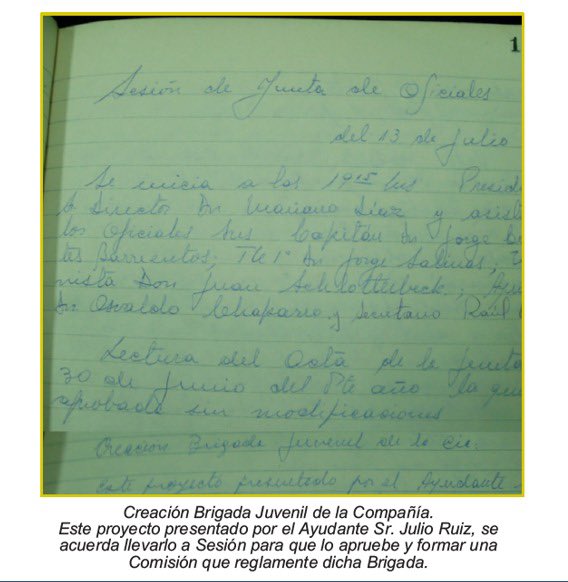 1
Sesión de Junta de Oficiales
del 13 de Julio
Se inicia a las 19 15 hrs Presid
el Director Dn Mariano Díaz y asist
los Oficiales Srs Capitán Dn Jorge
tes Barrientos; Tte 1° Dn Jorge Salinas;
Don Juan Schlotterbeck;
Dn Osvaldo Chaparro y Secretario Raúl
Lectura del Acta de la Junta
30 de Junio del Pte año la que
aprobada sin modificaciones
Creación Brigada Juvenil de la Cia.
Este proyecto presentado por el Ayudante
Creación Brigada Juvenil de la Compañía.
Este proyecto presentado por el Ayudante Sr. Julio Ruiz, se
acuerda llevarlo a Sesión para que lo apruebe y formar una
Comisión que reglamente dicha Brigada.